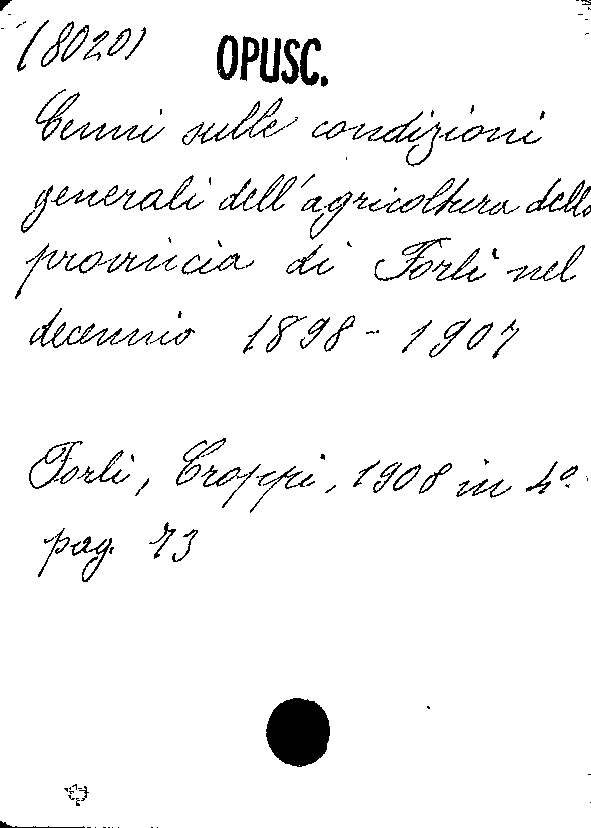 (8020) OPUSC.
Cenni sulle condizioni
generali dell'agricoltura della
provincia di Forlì nel
decennio 1898-1907
Forlì, Croppi, 1908 in 4º
pag. 73